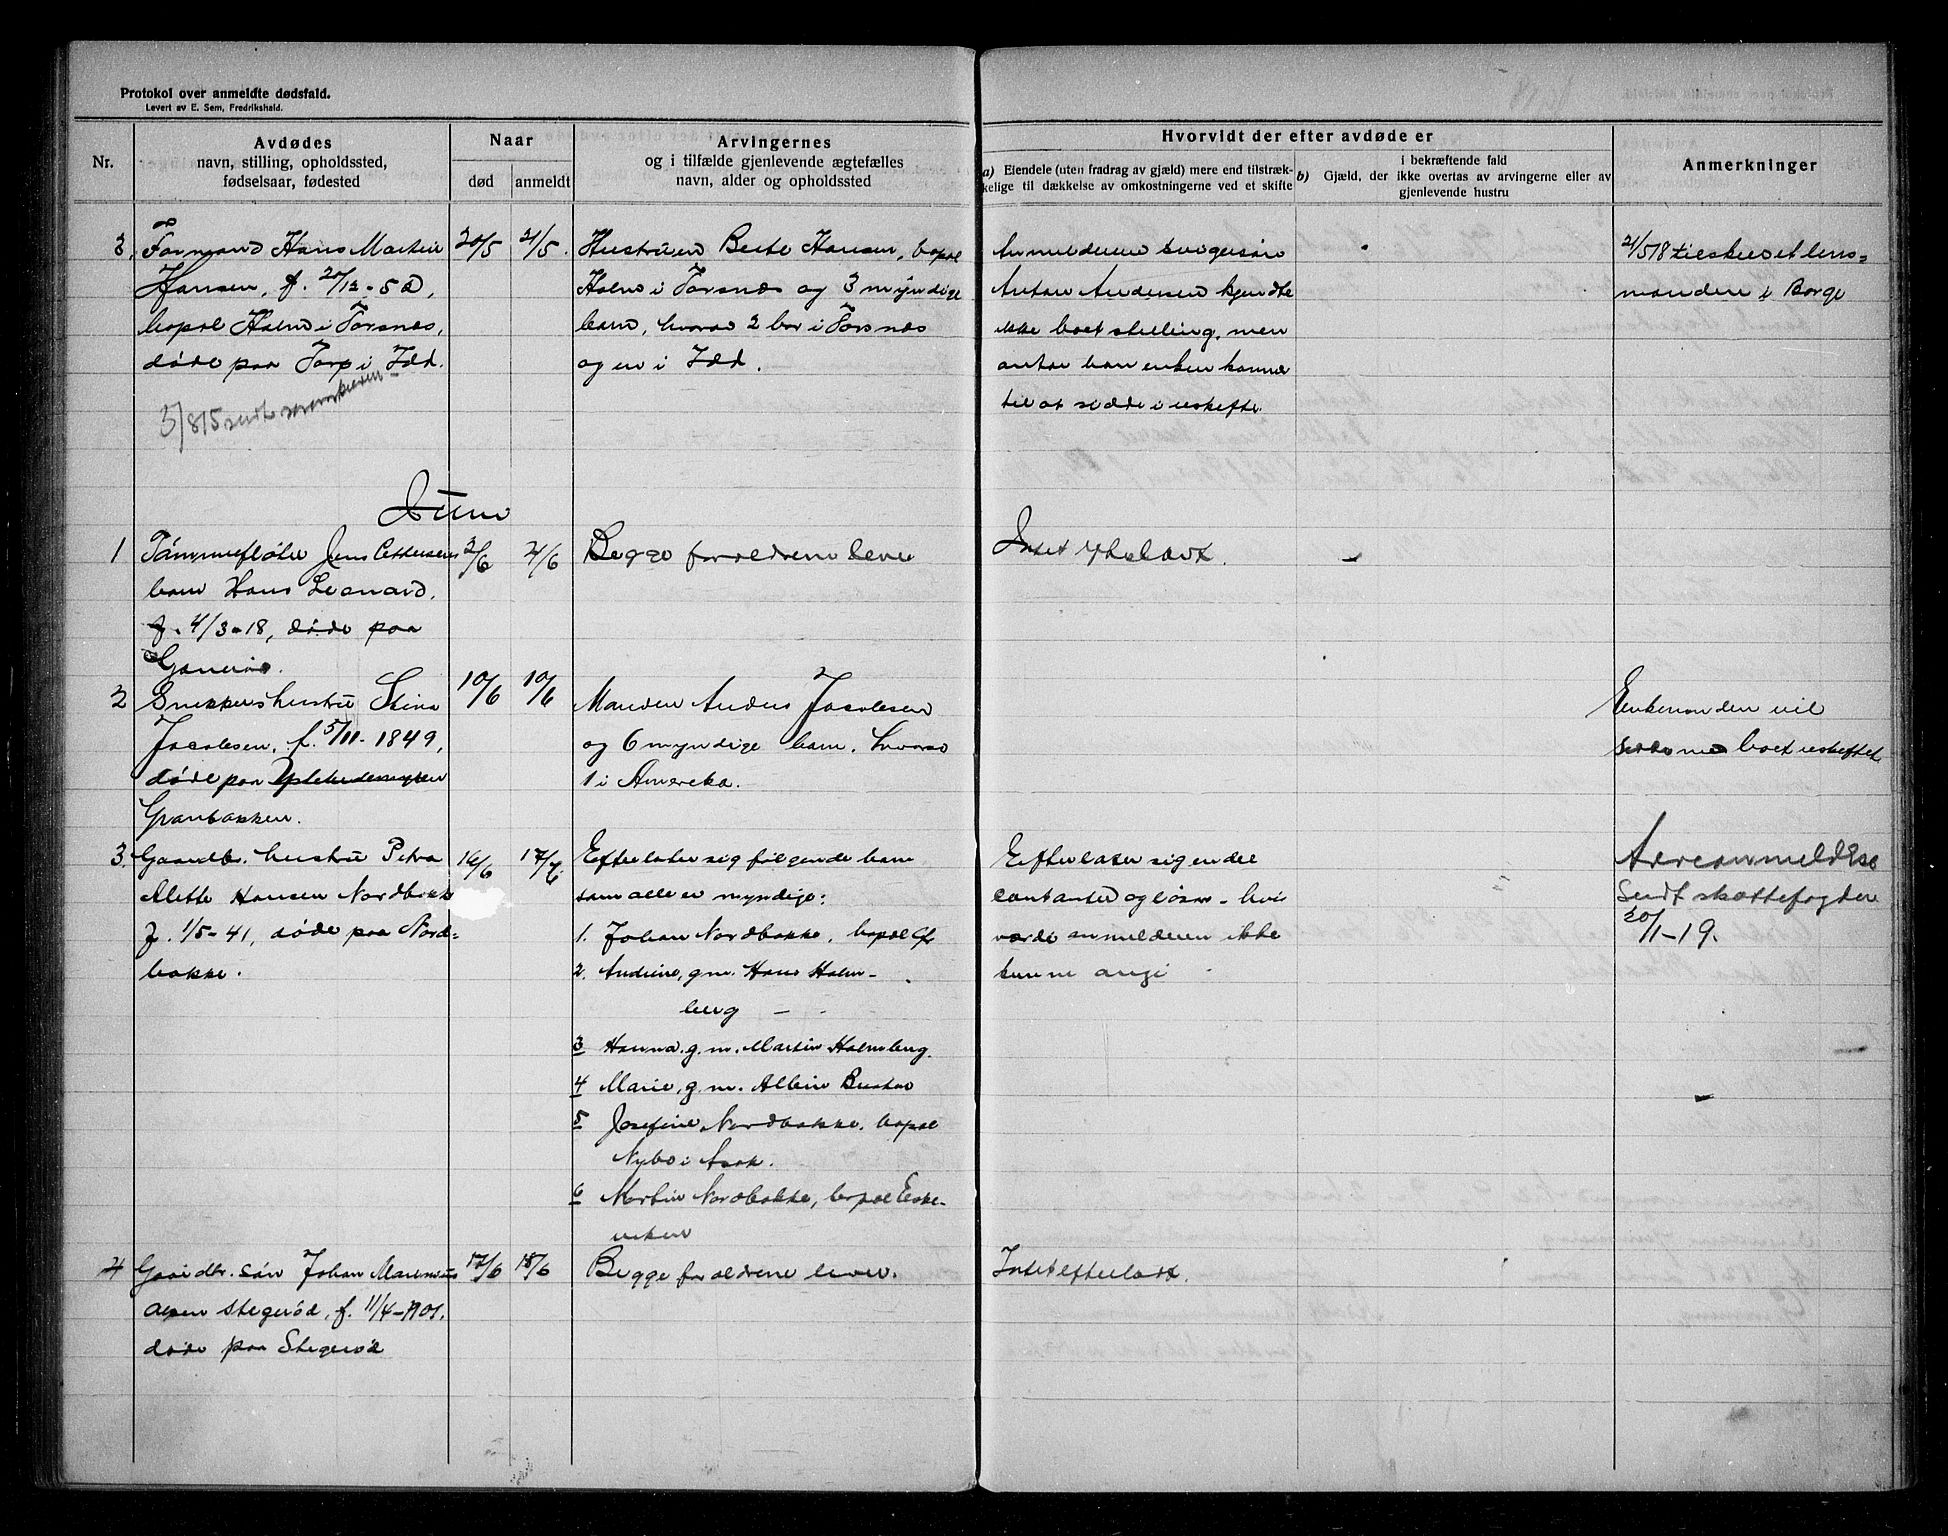 Protokol over anmeldte dødsfald.
Levert av E. Sem, Fredrikshald.
Nr.
Avdødes
navn, stilling, opholdssted,
fødselsaar, fødested
Naar
død
anmeldt
Arvingernes
og i tilfælde gjenlevende ægtefælles
navn, alder og opholdssted
Hvorvidt der efter avdøde er
a) Eiendele (uten fradrag av gjæld) mere end tilstræk-
kelige til dækkelse av omkostningerne ved et skifte
i bekræftende fald
b) Gjæld, der ikke overtas av arvingerne eller av
gjenlevende hustru
Anmerkninger
3. Formand Hans Martin
Hansen, f. 20/12-50,
bopæl Holm i Torsnes,
døde paa Torp i Idd.
3/815 sendt
20/5
21/5.
Hustruen Berte Hansen, bopæl
Holm i Torsnes og 3 myndige
barn, hvorav 2 bor i Torsnes
og en i Idd.
Anmelderen svigersøn
Anton Andersen kjendte
ikke boets stilling, men
antar han enken kommer
til at sidde i uskifte.
21/518 tilskrevet lens-
manden i Borge
Juni
1 Tømmerfløter Jens Pettersens
barn Hans Leonard,
f. 4/3-18, døde paa
2/6
4/6
Begge forældrene lever
Intet efterladt.
2 Snekkers hustru Stina
Jacobsen, f. 5/11-1849,
døde paa
Granbakken.
10/6
10/6
Manden Anders Jacobsen
og 6 myndige barn, hvorav
1 i Amerika.
Enkemanden vil
sidde med boet uskiftet
3. Gaardbr. hustru Petra
Alette Hansen Nordbakke
f. 1/5-41, døde paa Nord-
bakke.
16/6
17/6.
Efterlater sig følgende barn
som alle er myndige:
1. Johan Nordbakke, bopæl
2. Andrine, g.m. Hans Holm-
berg —
3 Hanna, g.m. Martin Holmberg.
4 Marie, g.m. Albin
5 Josefine Nordbakke, bopæl
Nybo i Asak.
6 Martin Nordbakke, bopæl Eske-
viken
Efterlater sig endel
contanter og løsøre - hvis
værdi anmelderen ikke
kunne angi
Arveanmeldelse
sendt skattefogden
20/1-19.
4 Gaardbr. søn Johan Marenius
Stegerød, f. 11/4-1901,
døde paa Stegerød
17/6
18/6
Begge forældrene lever.
Intet efterladt.